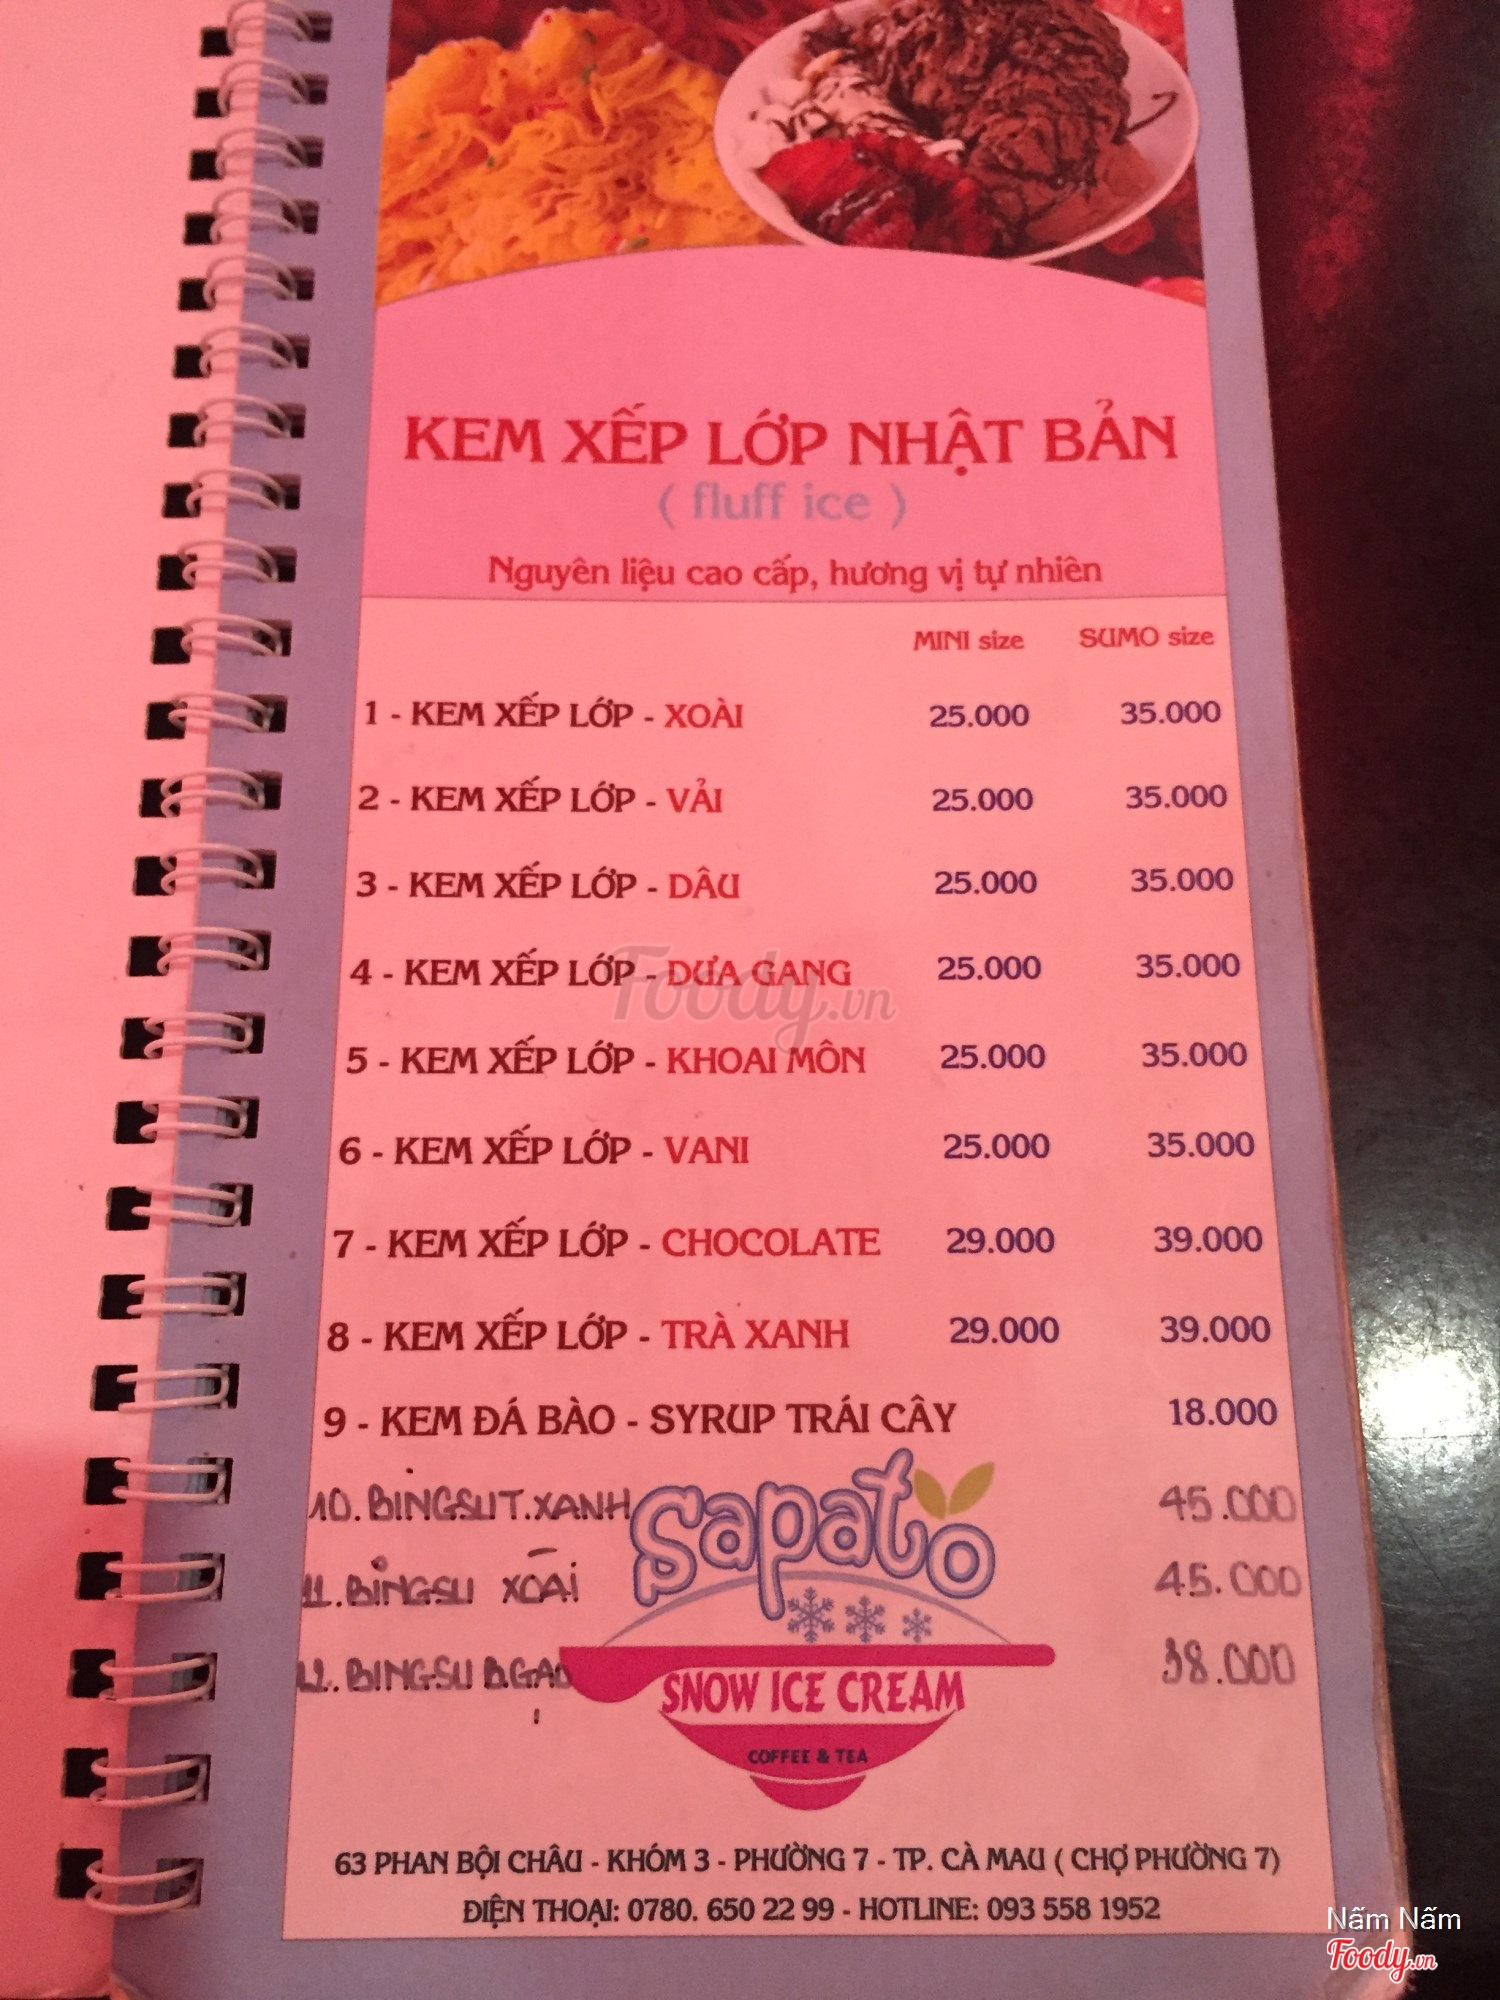 KEM XẾP LỚP NHẬT BẢN
( fluff ice )
Nguyên liệu cao cấp, hương vị tự nhiên
MINI size SUMO size
1 - KEM XẾP LỚP - XOÀI 25.000 35.000
2 - KEM XẾP LỚP - VẢI 25.000 35.000
3 - KEM XẾP LỚP - DÂU 25.000 35.000
4 - KEM XẾP LỚP - DƯA GANG 25.000 35.000
Foody.vn
5 - KEM XẾP LỚP - KHOAI MÔN 25.000 35.000
6 - KEM XẾP LỚP - VANI 25.000 35.000
7 - KEM XẾP LỚP - CHOCOLATE 29.000 39.000
8 - KEM XẾP LỚP - TRÀ XANH 29.000 39.000
9 - KEM ĐÁ BÀO - SYRUP TRÁI CÂY 18.000
10. BINGSU T.XANH 45.000
11. BINGSU XOÀI 45.000
12. BINGSU B.GAO 38.000
sapato
SNOW ICE CREAM
COFFEE & TEA
63 PHAN BỘI CHÂU - KHÓM 3 - PHƯỜNG 7 - TP. CÀ MAU ( CHỢ PHƯỜNG 7)
ĐIỆN THOẠI: 0780. 650 22 99 - HOTLINE: 093 558 1952
Nấm Nấm
Foody.vn